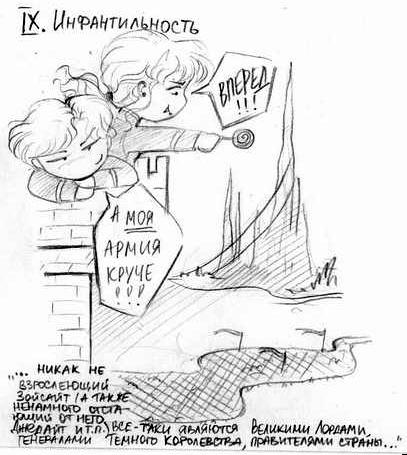 IX. Инфантильность
ВПЕРЕД
!!!
А МОЯ
АРМИЯ
КРУЧЕ
!!!
"... НИКАК НЕ
ВЗРОСЛЕЮЩИЙ
Зойсайт (А ТАКЖЕ
НЕНАМНОГО ОТСТА-
ЮЩИЙ ОТ НЕГО
Джедайт и т.п.) ВСЕ-ТАКИ ЯВЛЯЮТСЯ ВЕЛИКИМИ ЛОРДАМИ,
ГЕНЕРАЛАМИ ТЕМНОГО КОРОЛЕВСТВА, ПРАВИТЕЛЯМИ СТРАНЫ..."